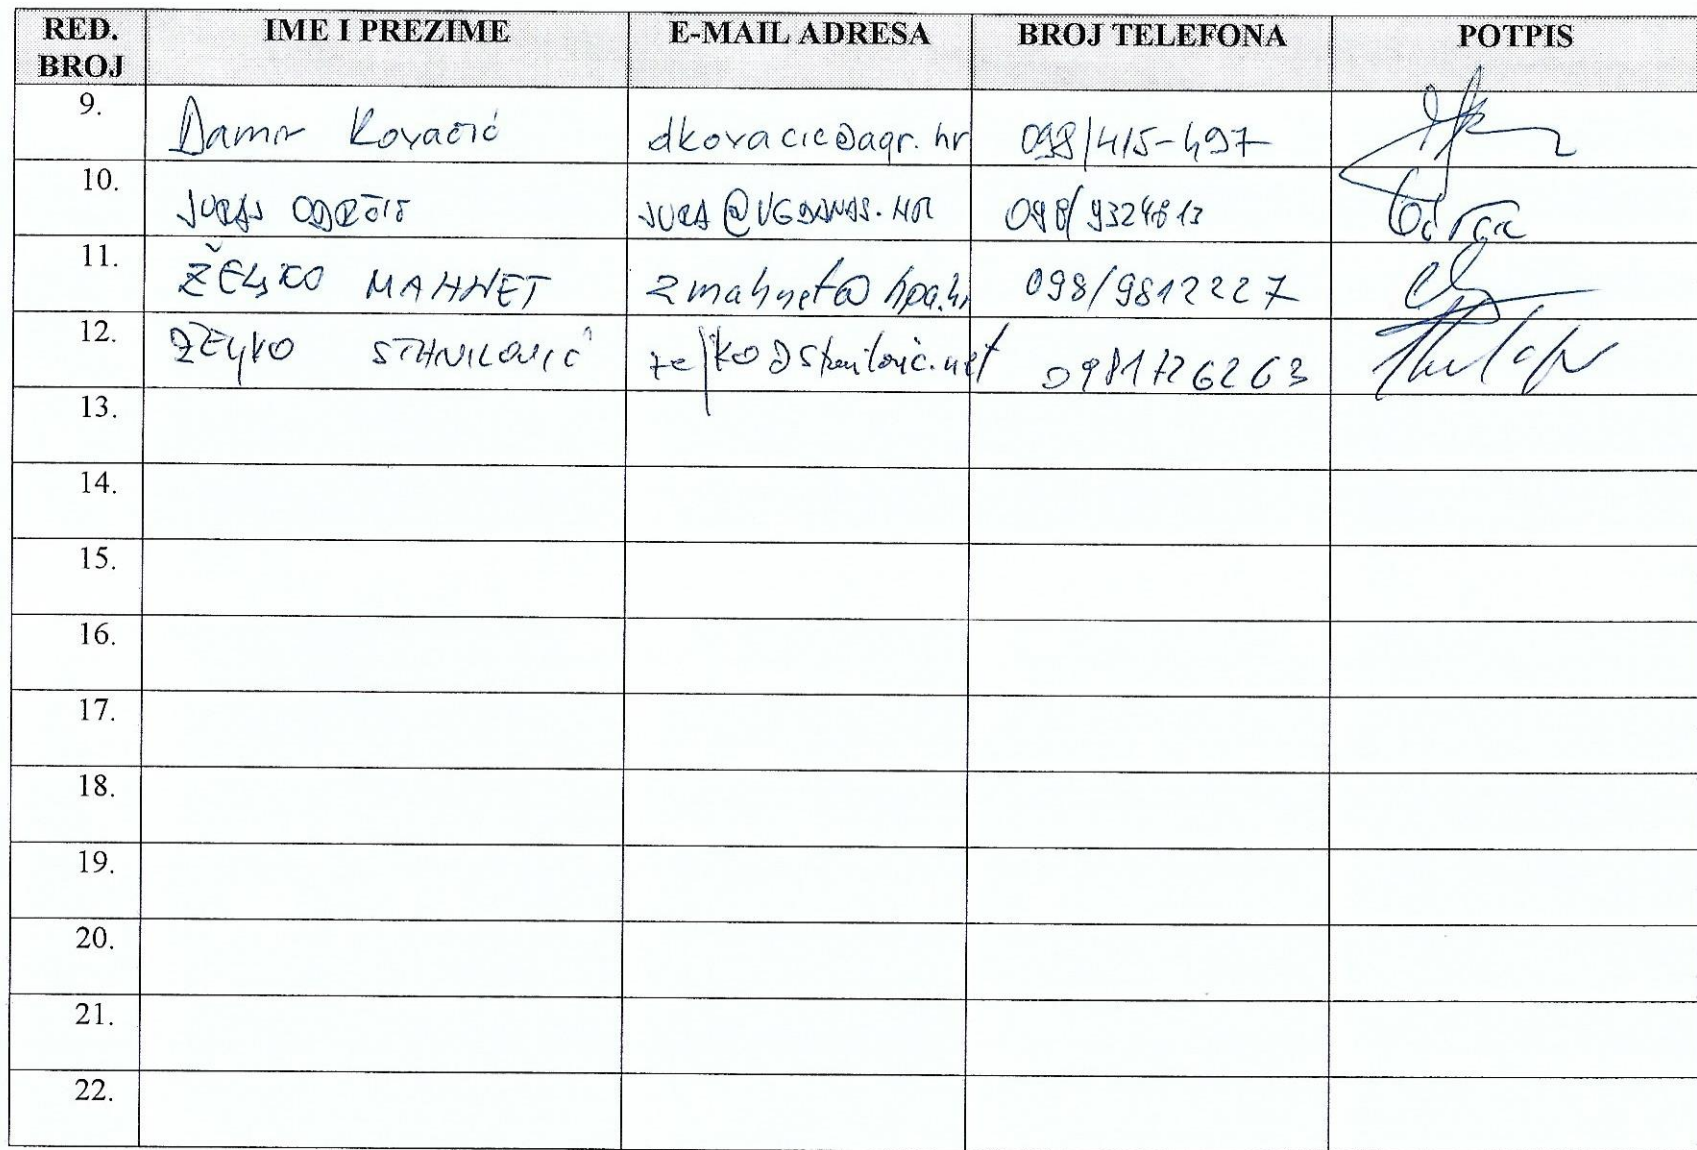 RED. BROJ IME I PREZIME E-MAIL ADRESA BROJ TELEFONA POTPIS
9. Damir Kovačić dkovacic@agr.hr 098/415-497
10. JURAJ ODRČIĆ JURA@VGDANAS.HR 098/9324813
11. ŽELJKO MAHNET zmahnet@hpa.hr 098/9812227
12. ŽELJKO STANILOVIĆ 0981726263
13.
14.
15.
16.
17.
18.
19.
20.
21.
22.